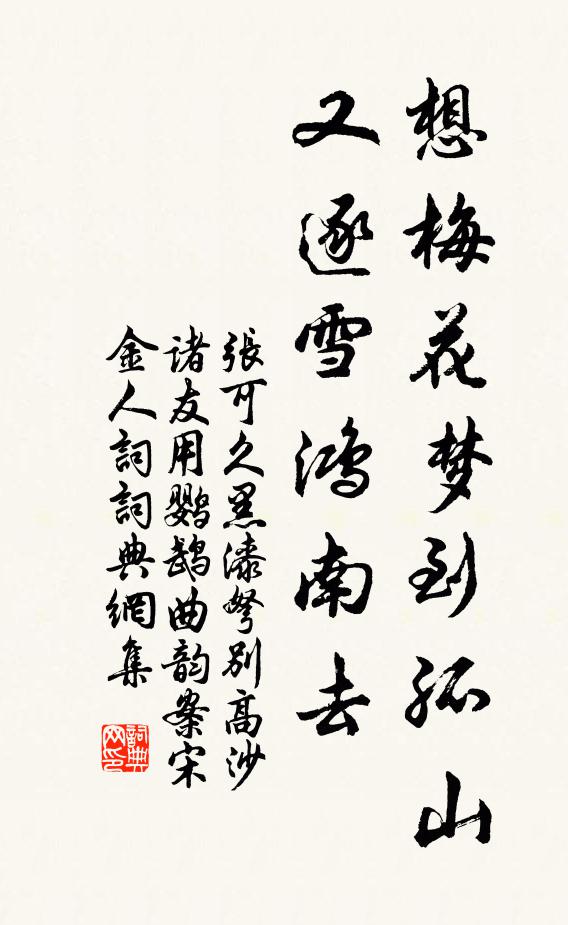 想梅花梦到孤山
又逐雪鸿南去
張可久黑漆弩别高沙
诸友用鹦鹉曲韵案宋
金人詞詞典網集
詞典网印